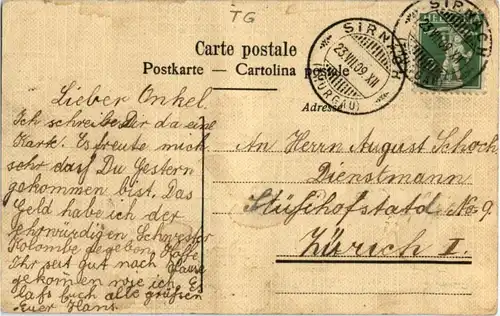 TG
Carte postale
Postkarte — Cartolina postale
Adresse
SIRNACH
23.VII.09.XII
(THURGAU)
SIRNACH
23.VII.09
HELVETIA
Lieber Onkel.
Ich schreibe Dir da eine
Karte. Es freute mich
sehr dass Du Gestern
gekommen bist. Das
Geld habe ich der
Ehrwürdigen Schwester
Kolombe gegeben. Hoffe
Ihr seit gut nach Hause
gekomen wie ich. Es
lasst Euch alle grüssen
Euer Hans.
An Herrn August Schoch
Dienstmann
No 9.
Zürich I.